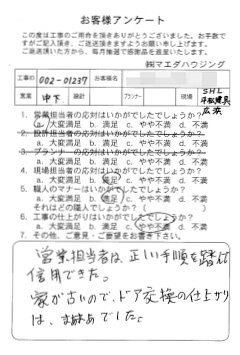 お客様アンケート
この度は工事のご用命を頂きありがとうございました。お手数で
すがご記入頂き、ご返送頂きますようお願い申し上げます。
ご返送頂いた方から、毎月抽選で感謝品を進呈いたします。
㈱マエダハウジング
工事ID 002-01239 お客様名
営業 中下 設計 プランナー 現場 SHL
広浜
1. 営業担当者の応対はいかがでしたでしょうか？
a. 大変満足 b. 満足 c. やや不満 d. 不満
2. 設計担当者の応対はいかがでしたでしょうか？
a. 大変満足 b. 満足 c. やや不満 d. 不満
3. プランナーの応対はいかがでしたでしょうか？
a. 大変満足 b. 満足 c. やや不満 d. 不満
4. 現場担当者の応対はいかがでしたでしょうか？
a. 大変満足 b. 満足 c. やや不満 d. 不満
5. 職人のマナーはいかがでしたでしょうか？
a. 大変満足 b. 満足 c. やや不満 d. 不満
それはどの職人でしょうか？
6. 工事の仕上がりはいかがでしたでしょうか？
a. 大変満足 b. 満足 c. やや不満 d. 不満
7. その他、ご意見・ご要望をお書き下さい。
営業担当者は、正しい手順を踏んで
信用できた。
家が古いので、ドア交換の仕上がり
は、まあまあでした。